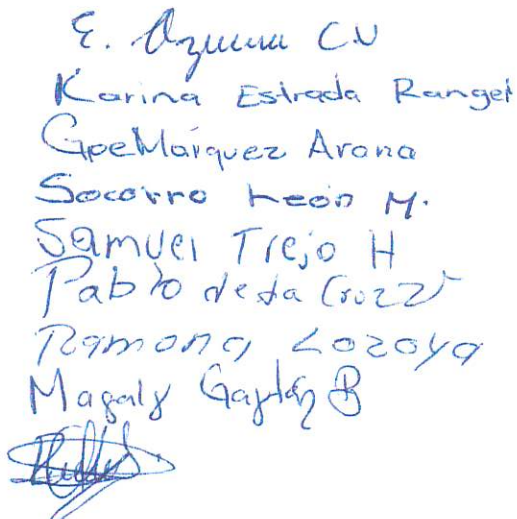 E. C.V
Karina Estrada Rangel
Gpe Márquez Arana
Socorro León M.
Samuel Trejo H
Pablo de la Cruz Z
Ramona Lozoya
Magaly Gaytán B